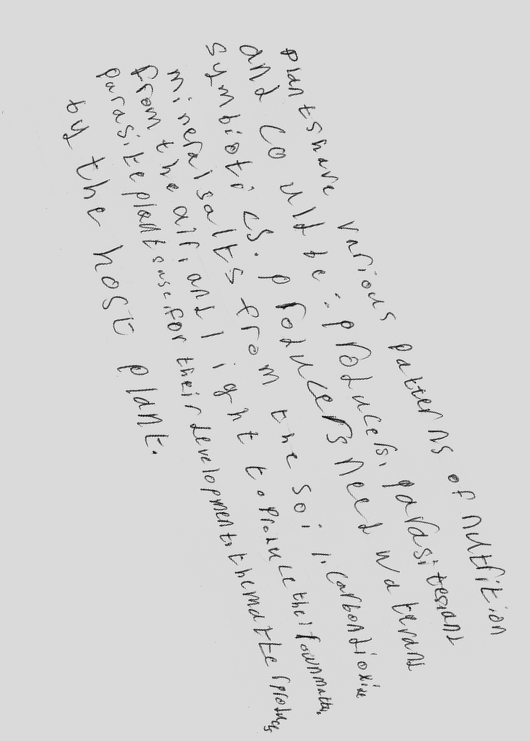 Plants have various patterns of nutrition
and could be: producers, parasites and
symbiotics. producers need water and
mineral salts from the soil, carbon dioxide
from the air, and light to produce their own matter,
parasite plants use for their development, the matter produces
by the host plant.